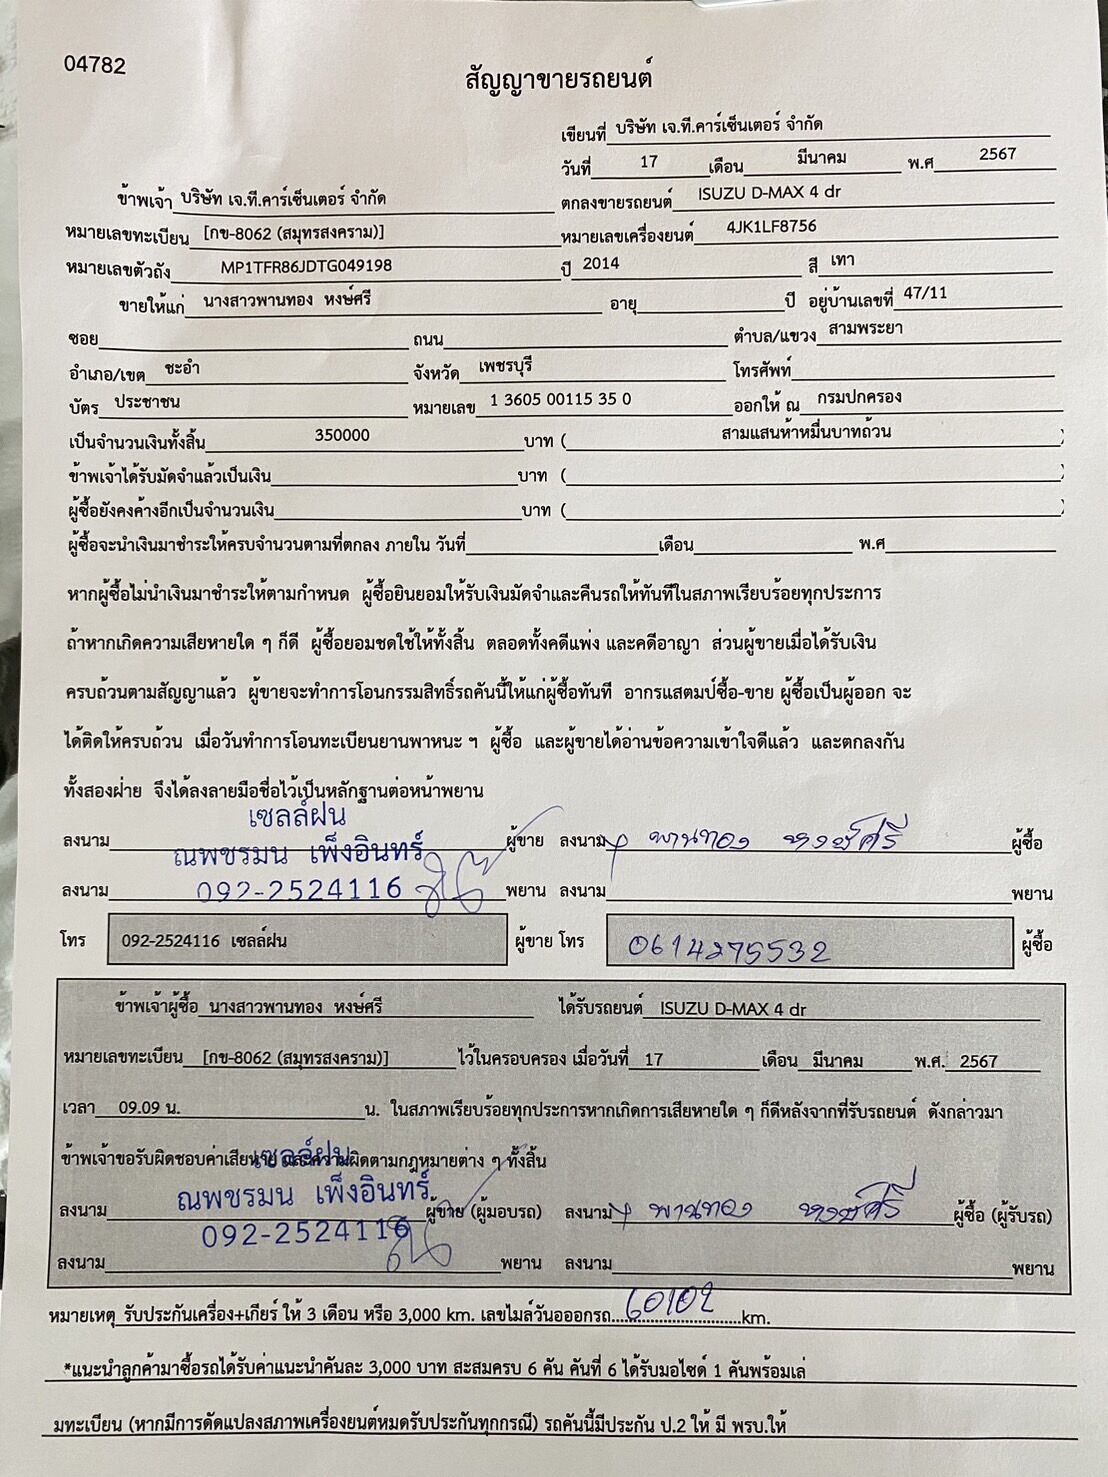 04782
สัญญาขายรถยนต์
เขียนที่ บริษัท เจ.ที.คาร์เซ็นเตอร์ จำกัด
วันที่ 17 เดือน มีนาคม พ.ศ 2567
ข้าพเจ้า บริษัท เจ.ที.คาร์เซ็นเตอร์ จำกัด ตกลงขายรถยนต์ ISUZU D-MAX 4 dr
หมายเลขทะเบียน [กข-8062 (สมุทรสงคราม)] หมายเลขเครื่องยนต์ 4JK1LF8756
หมายเลขตัวถัง MP1TFR86JDTG049198 ปี 2014 สี เทา
ขายให้แก่ นางสาวพานทอง หงษ์ศรี อายุ ปี อยู่บ้านเลขที่ 47/11
ซอย ถนน ตำบล/แขวง สามพระยา
อำเภอ/เขต ชะอำ จังหวัด เพชรบุรี โทรศัพท์
บัตร ประชาชน หมายเลข 1 3605 00115 35 0 ออกให้ ณ กรมปกครอง
เป็นจำนวนเงินทั้งสิ้น 350000 บาท ( สามแสนห้าหมื่นบาทถ้วน )
ข้าพเจ้าได้รับมัดจำแล้วเป็นเงิน บาท ( )
ผู้ซื้อยังคงค้างอีกเป็นจำนวนเงิน บาท ( )
ผู้ซื้อจะนำเงินมาชำระให้ครบจำนวนตามที่ตกลง ภายใน วันที่ เดือน พ.ศ
หากผู้ซื้อไม่นำเงินมาชำระให้ตามกำหนด ผู้ซื้อยินยอมให้รับเงินมัดจำและคืนรถให้ทันทีในสภาพเรียบร้อยทุกประการ
ถ้าหากเกิดความเสียหายใด ๆ ก็ดี ผู้ซื้อยอมชดใช้ให้ทั้งสิ้น ตลอดทั้งคดีแพ่ง และคดีอาญา ส่วนผู้ขายเมื่อได้รับเงิน
ครบถ้วนตามสัญญาแล้ว ผู้ขายจะทำการโอนกรรมสิทธิ์รถคันนี้ให้แก่ผู้ซื้อทันที อากรแสตมป์ซื้อ-ขาย ผู้ซื้อเป็นผู้ออก จะ
ได้ติดให้ครบถ้วน เมื่อวันทำการโอนทะเบียนยานพาหนะ ฯ ผู้ซื้อ และผู้ขายได้อ่านข้อความเข้าใจดีแล้ว และตกลงกัน
ทั้งสองฝ่าย จึงได้ลงลายมือชื่อไว้เป็นหลักฐานต่อหน้าพยาน
เซลล์ฝน
ลงนาม ณพชรมน เพ็งอินทร์ ผู้ขาย ลงนาม พานทอง หงษ์ศรี ผู้ซื้อ
ลงนาม 092-2524116 พยาน ลงนาม พยาน
โทร 092-2524116 เซลล์ฝน ผู้ขาย โทร 0614275532 ผู้ซื้อ
ข้าพเจ้าผู้ซื้อ นางสาวพานทอง หงษ์ศรี ได้รับรถยนต์ ISUZU D-MAX 4 dr
หมายเลขทะเบียน [กข-8062 (สมุทรสงคราม)] ไว้ในครอบครอง เมื่อวันที่ 17 เดือน มีนาคม พ.ศ. 2567
เวลา 09.09 น. น. ในสภาพเรียบร้อยทุกประการหากเกิดการเสียหายใด ๆ ก็ดีหลังจากที่รับรถยนต์ ดังกล่าวมา
ข้าพเจ้าขอรับผิดชอบค่าเสียหาย และความผิดตามกฎหมายต่าง ๆ ทั้งสิ้น
เซลล์ฝน
ลงนาม ณพชรมน เพ็งอินทร์ ผู้ขาย (ผู้มอบรถ) ลงนาม พานทอง หงษ์ศรี ผู้ซื้อ (ผู้รับรถ)
092-2524116
ลงนาม พยาน ลงนาม พยาน
หมายเหตุ รับประกันเครื่อง+เกียร์ ให้ 3 เดือน หรือ 3,000 km. เลขไมล์วันอออกรถ 60102 km.
*แนะนำลูกค้ามาซื้อรถได้รับค่าแนะนำคันละ 3,000 บาท สะสมครบ 6 คัน คันที่ 6 ได้รับมอไซด์ 1 คันพร้อมเล่
มทะเบียน (หากมีการดัดแปลงสภาพเครื่องยนต์หมดรับประกันทุกกรณี) รถคันนี้มีประกัน ป.2 ให้ มี พรบ.ให้